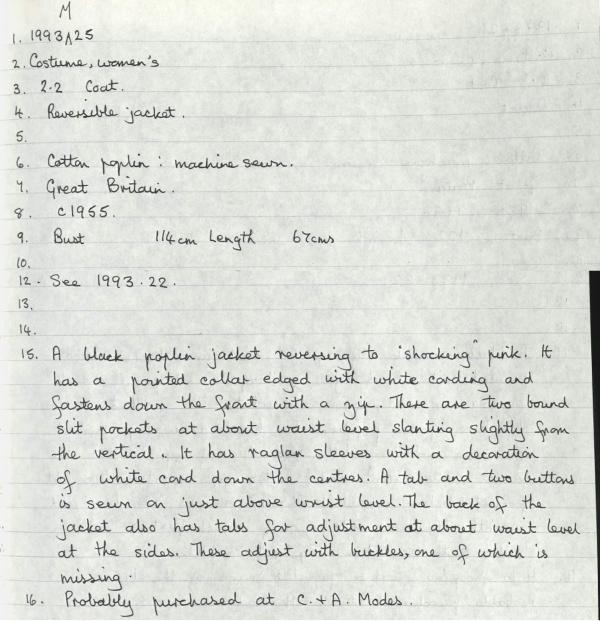 M
1. 1993∧25
2. Costume, women's
3. 2.2 Coat.
4. Reversible jacket.
5.
6. Cotton poplin : machine sewn.
7. Great Britain.
8. c1955.
9. Bust 114cm Length 67cms
10.
12. See 1993.22.
13.
14.
15. A black poplin jacket reversing to "shocking" pink. It
has a pointed collar edged with white cording and
fastens down the front with a zip. There are two bound
slit pockets at about waist level slanting slightly from
the vertical. It has raglan sleeves with a decoration
of white cord down the centres. A tab and two buttons
is sewn on just above wrist level. The back of the
jacket also has tabs for adjustment at about waist level
at the sides. These adjust with buckles, one of which is
missing.
16. Probably purchased at C. + A. Modes.